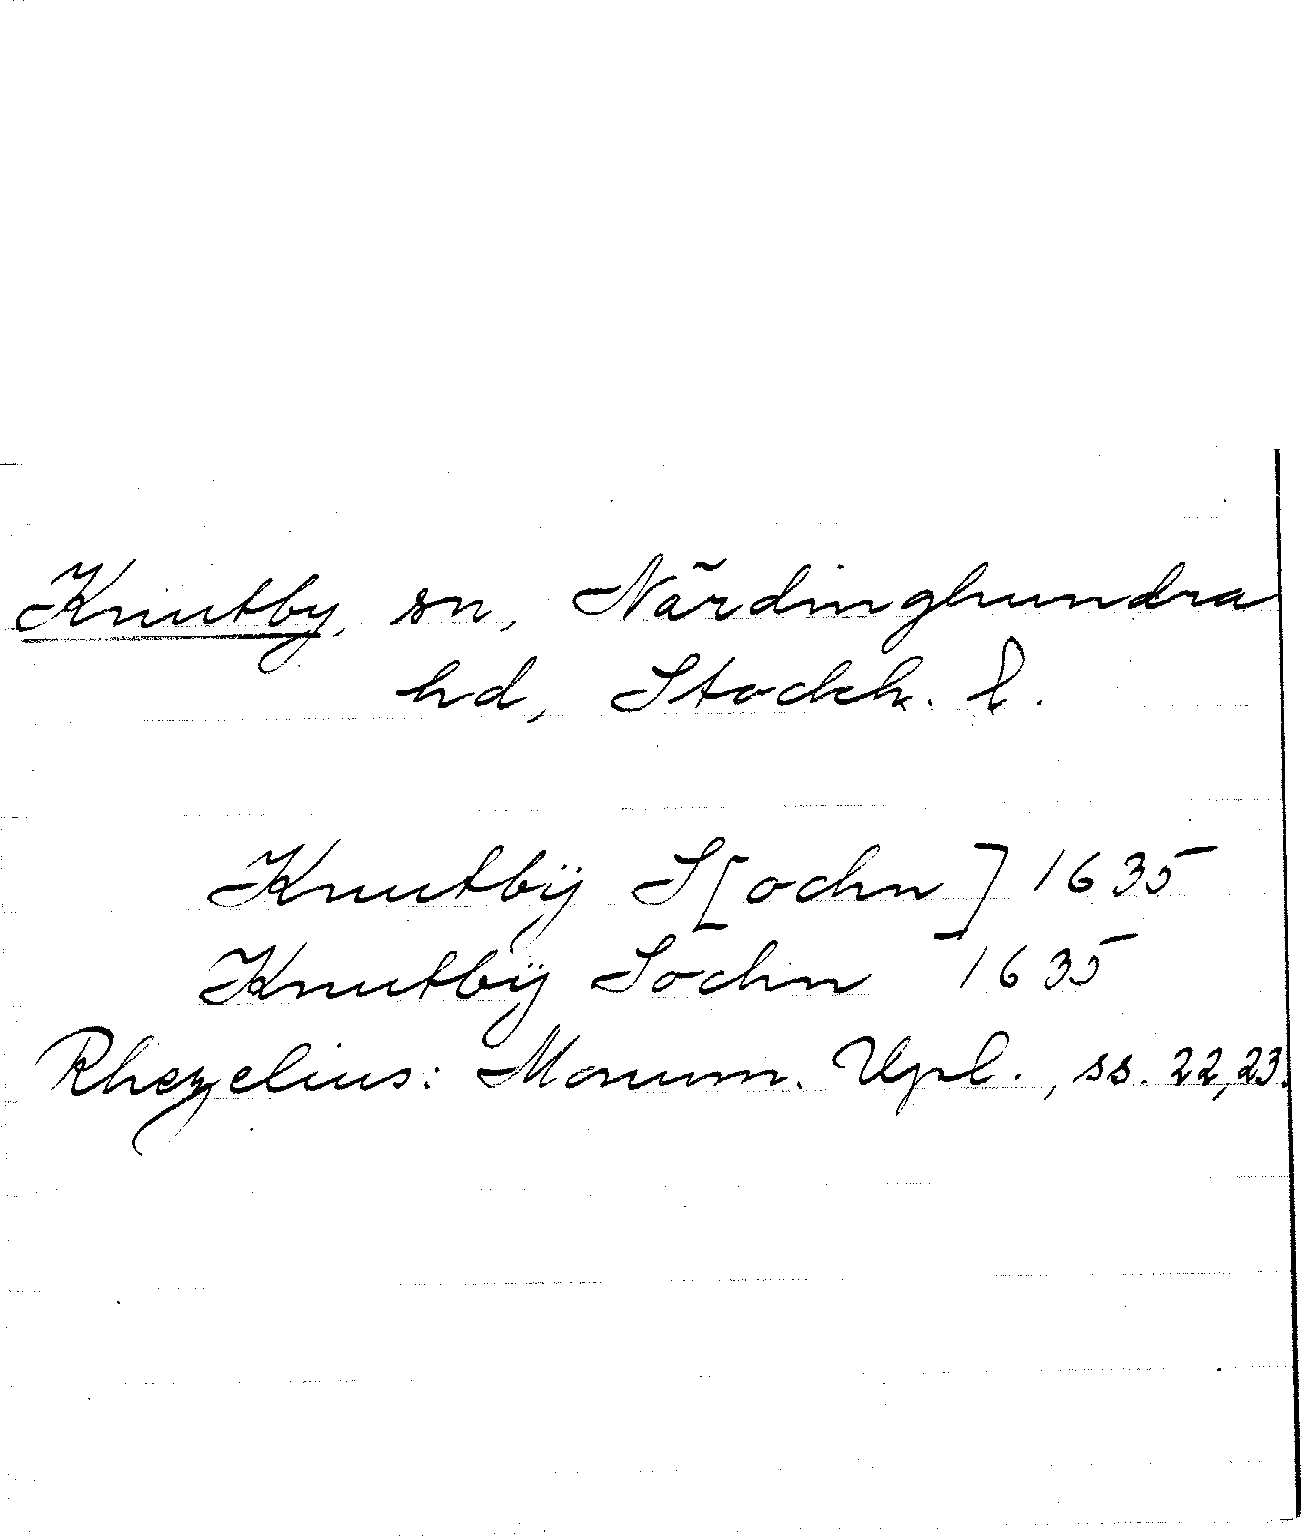 Knutby, sn, Närdinghundra
hd, Stockh. l.
Knutbÿ S[ochn] 1635
Knutbÿ Sochn 1635
Rhezelius: Monum. Upl., ss. 22, 23.